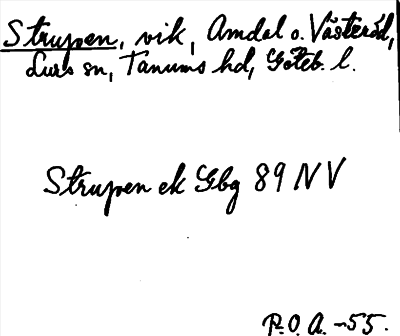 Strupen, vik, Amdal o. Västeröd,
Lurs sn, Tanums hd, Göteb. l.
Strupen ek Gbg 89 NV
P.O.A. -55.